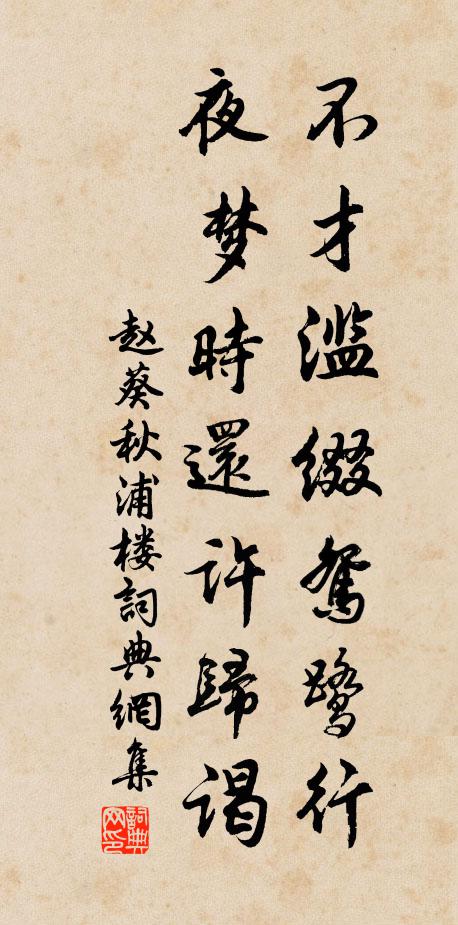 不才滥缀鸳鹭行
夜梦時還许歸谒
赵葵秋浦楼詞典網集
詞典
网印